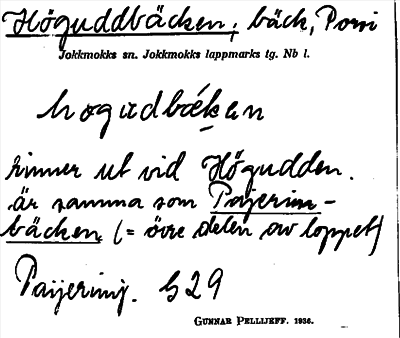 Höguddbäcken, bäck, Porsi
Jokkmokks sn. Jokkmokks lappmarks tg. Nb l.
hogudbækan
rinner ut vid Högudden.
är samma som Paijerim-
bäcken (= övre delen av loppet)
Paijerimj. b 29
GUNNAR PELLIJEFF. 1936.